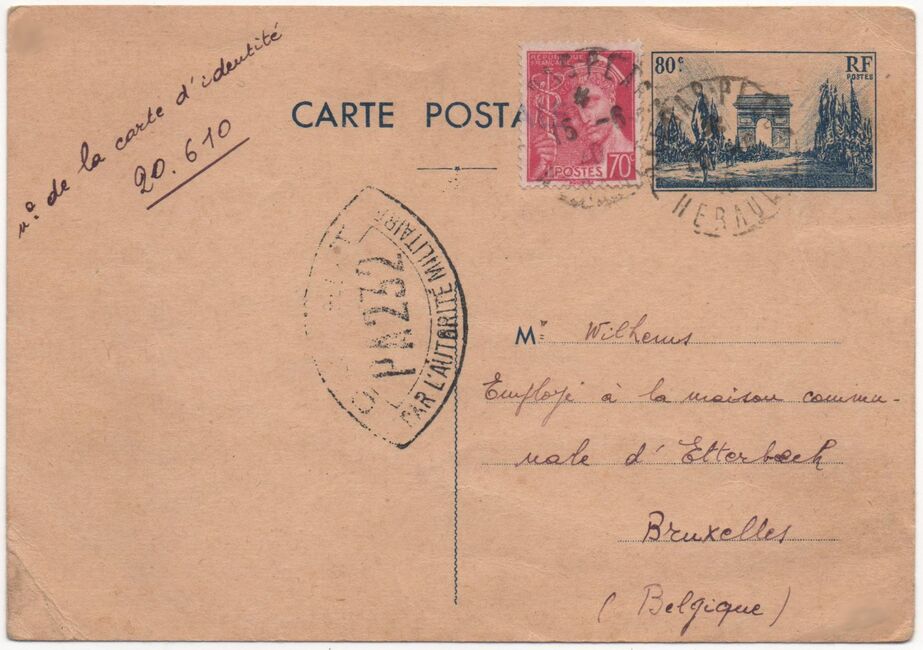 nº de la carte d'identité
20.610
CARTE POSTA
RÉPUBLIQUE
FRANÇAISE
70c
POSTES
80c
RF
POSTES
15 -6
HERAUL
PAR L'AUTORITÉ MILITAIRE
PA232
M. Wilhems
Employé à la maison commu-
nale d'Etterbeek
Bruxelles
(Belgique)